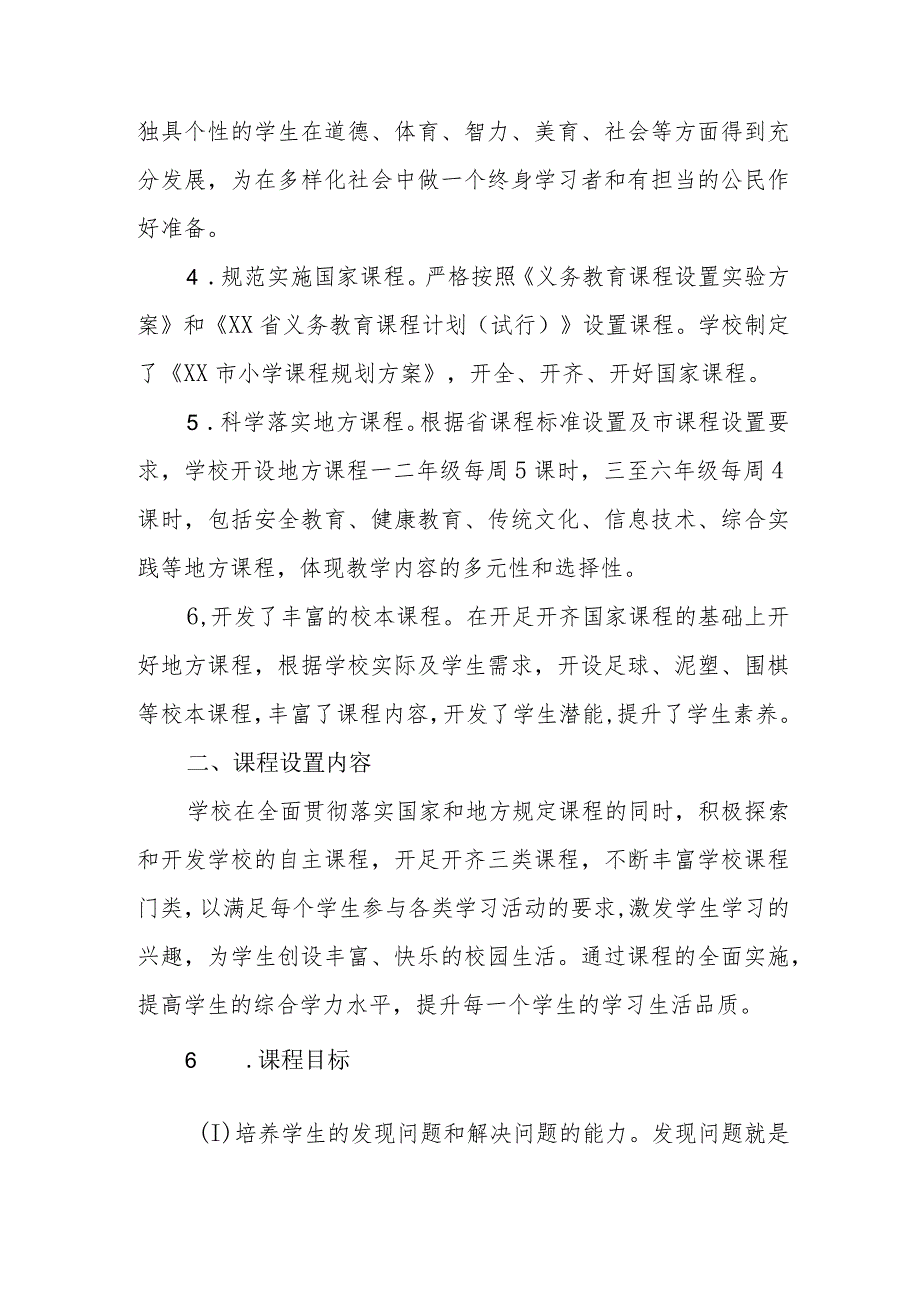 独具个性的学生在道德、体育、智力、美育、社会等方面得到充
分发展，为在多样化社会中做一个终身学习者和有担当的公民作
好准备。
4 .规范实施国家课程。严格按照《义务教育课程设置实验方
案》和《XX 省义务教育课程计划（试行）》设置课程。学校制定
了《XX 市小学课程规划方案》，开全、开齐、开好国家课程。
5 .科学落实地方课程。根据省课程标准设置及市课程设置要
求，学校开设地方课程一二年级每周 5 课时，三至六年级每周 4
课时，包括安全教育、健康教育、传统文化、信息技术、综合实
践等地方课程，体现教学内容的多元性和选择性。
6,开发了丰富的校本课程。在开足开齐国家课程的基础上开
好地方课程，根据学校实际及学生需求，开设足球、泥塑、围棋
等校本课程,丰富了课程内容,开发了学生潜能,提升了学生素养。
二、课程设置内容
学校在全面贯彻落实国家和地方规定课程的同时，积极探索
和开发学校的自主课程，开足开齐三类课程，不断丰富学校课程
门类，以满足每个学生参与各类学习活动的要求,激发学生学习的
兴趣，为学生创设丰富、快乐的校园生活。通过课程的全面实施，
提高学生的综合学力水平，提升每一个学生的学习生活品质。
6 .课程目标
(I)培养学生的发现问题和解决问题的能力。发现问题就是